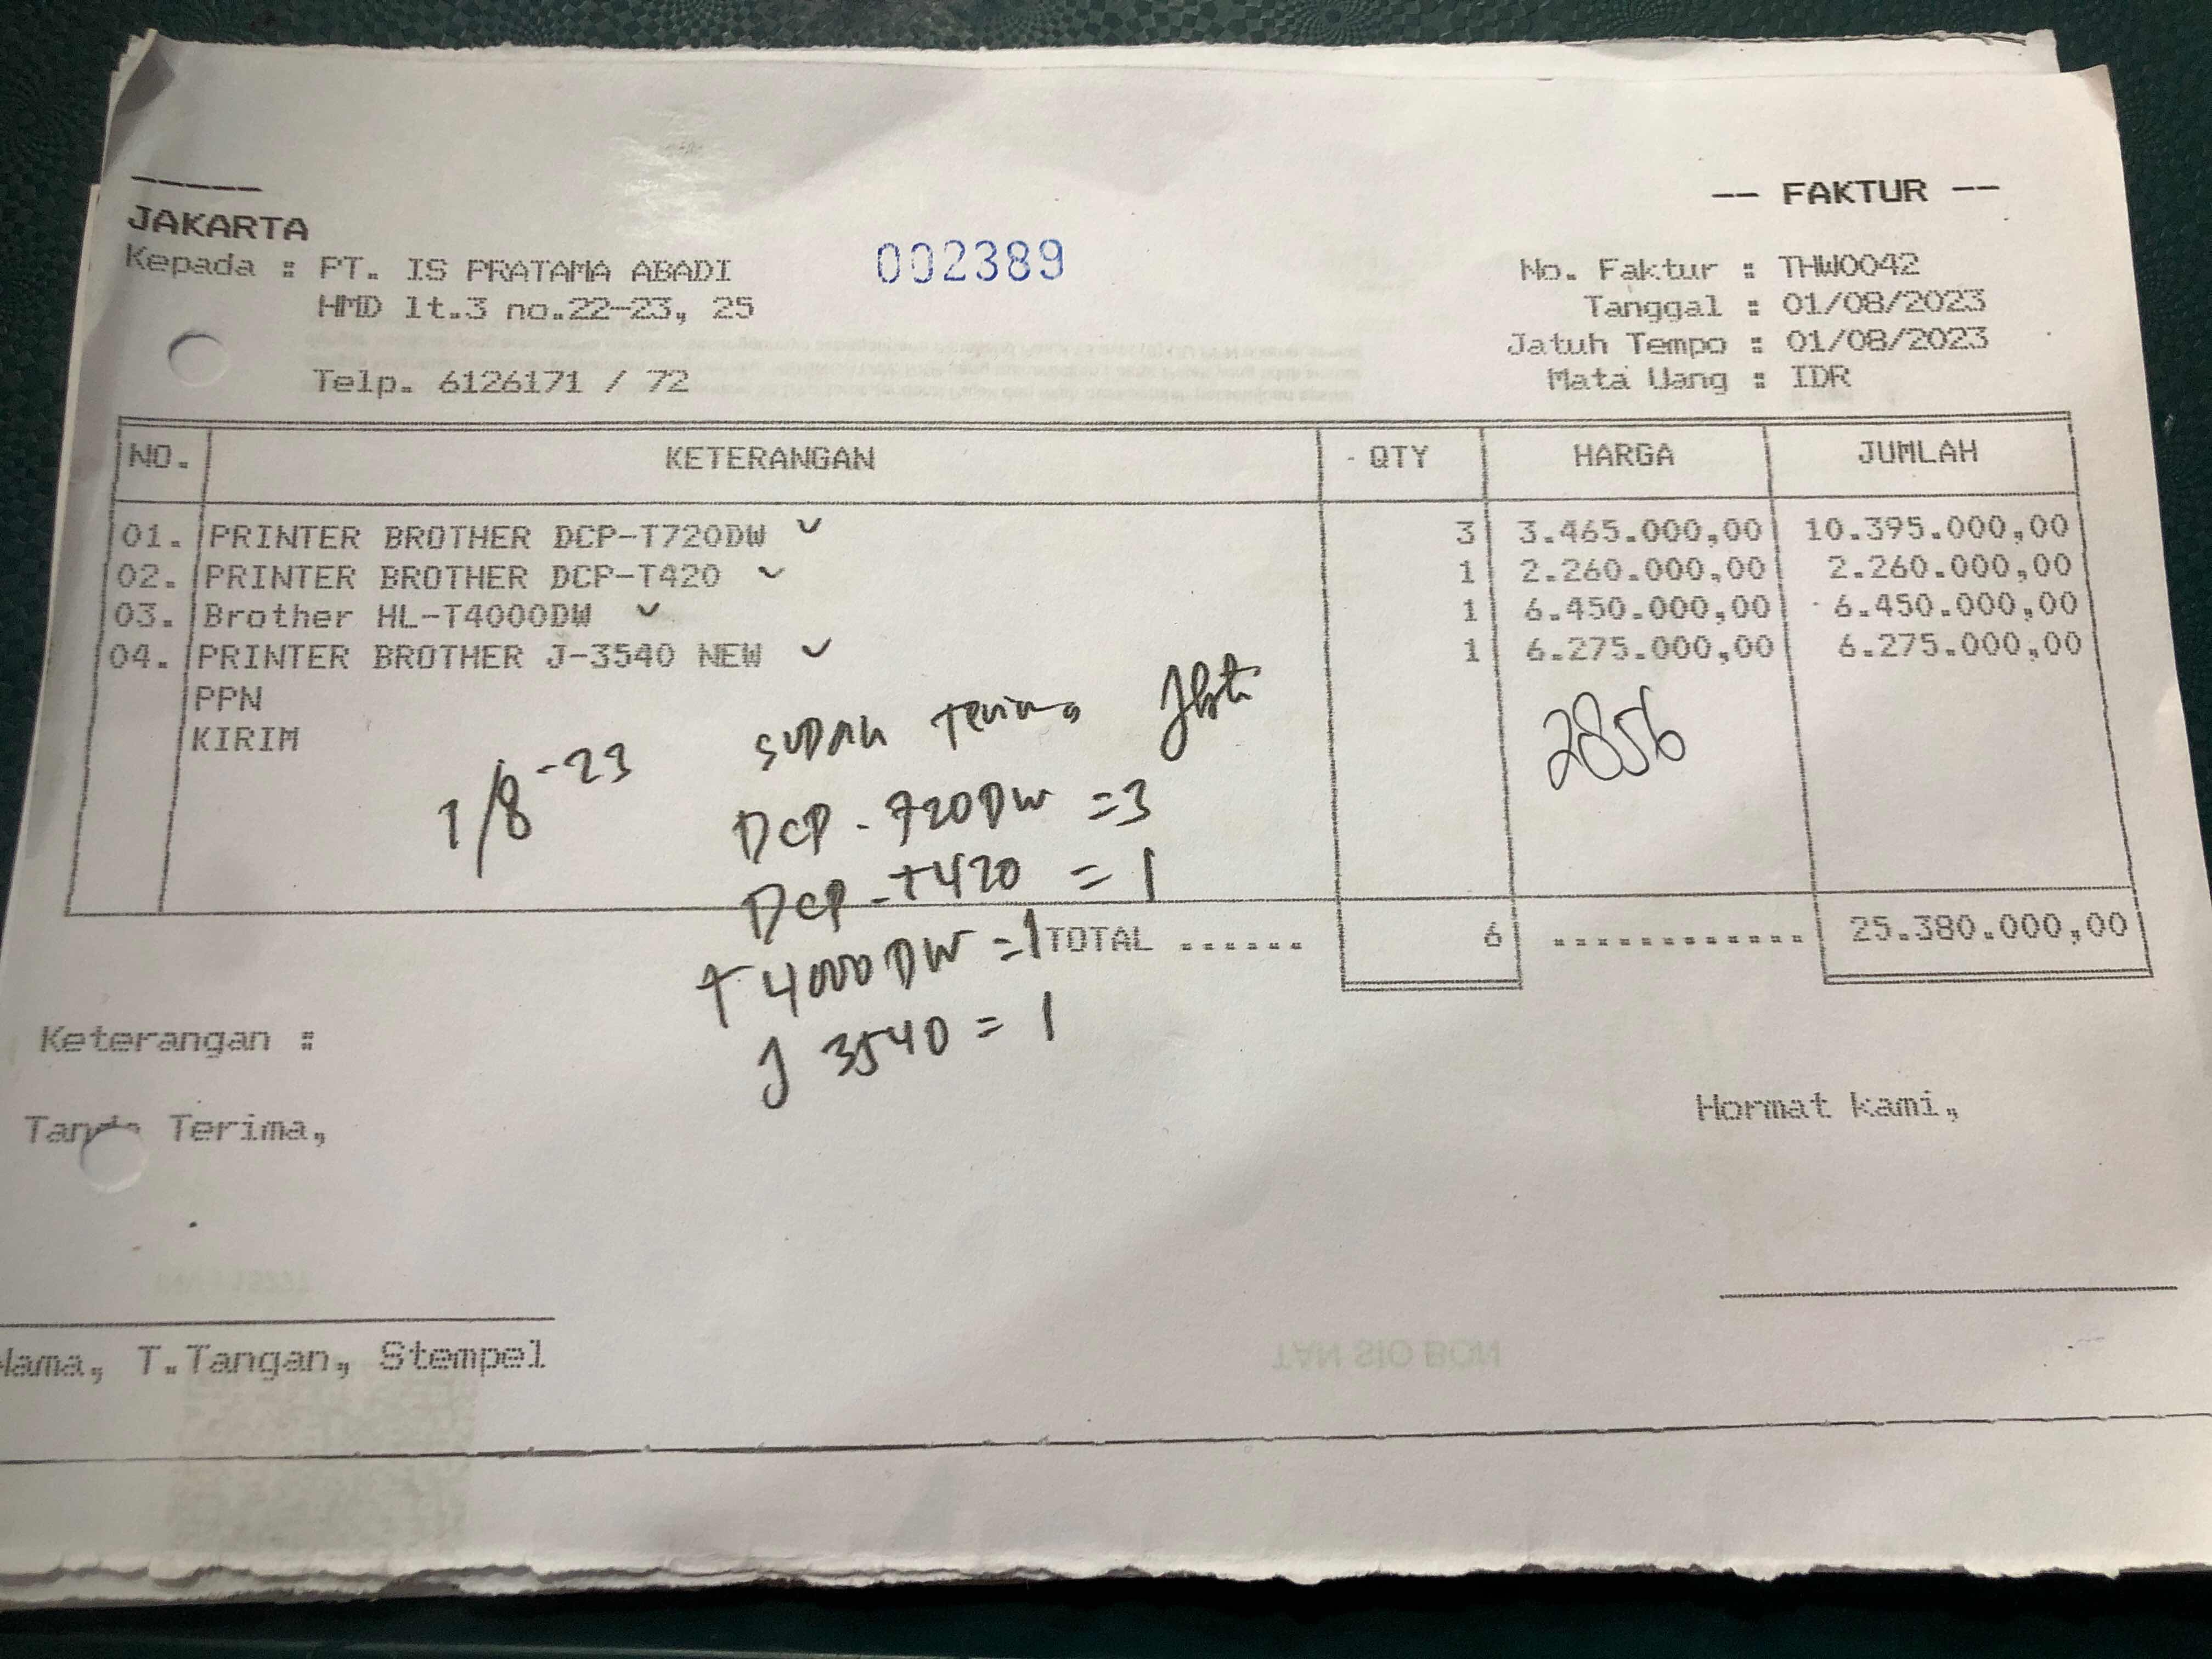 -- FAKTUR --
JAKARTA
Kepada : PT. IS PRATAMA ABADI
HMD lt.3 no.22-23, 25
Telp. 6126171 / 72
002389
No. Faktur : THW0042
Tanggal : 01/08/2023
Jatuh Tempo : 01/08/2023
Mata Uang : IDR
NO. KETERANGAN QTY HARGA JUMLAH
01. PRINTER BROTHER DCP-T720DW 3 3.465.000,00 10.395.000,00
02. PRINTER BROTHER DCP-T420 1 2.260.000,00 2.260.000,00
03. Brother HL-T4000DW 1 6.450.000,00 6.450.000,00
04. PRINTER BROTHER J-3540 NEW 1 6.275.000,00 6.275.000,00
PPN
KIRIM
2856
1/8-23 SUDAH Terima
DCP-720DW =3
DCP-T420 = 1
T4000DW =1
J 3540 = 1
TOTAL ...... 6 ............ 25.380.000,00
Keterangan :
Tanda Terima,
Hormat kami,
Nama, T.Tangan, Stempel
TAN SIO BON